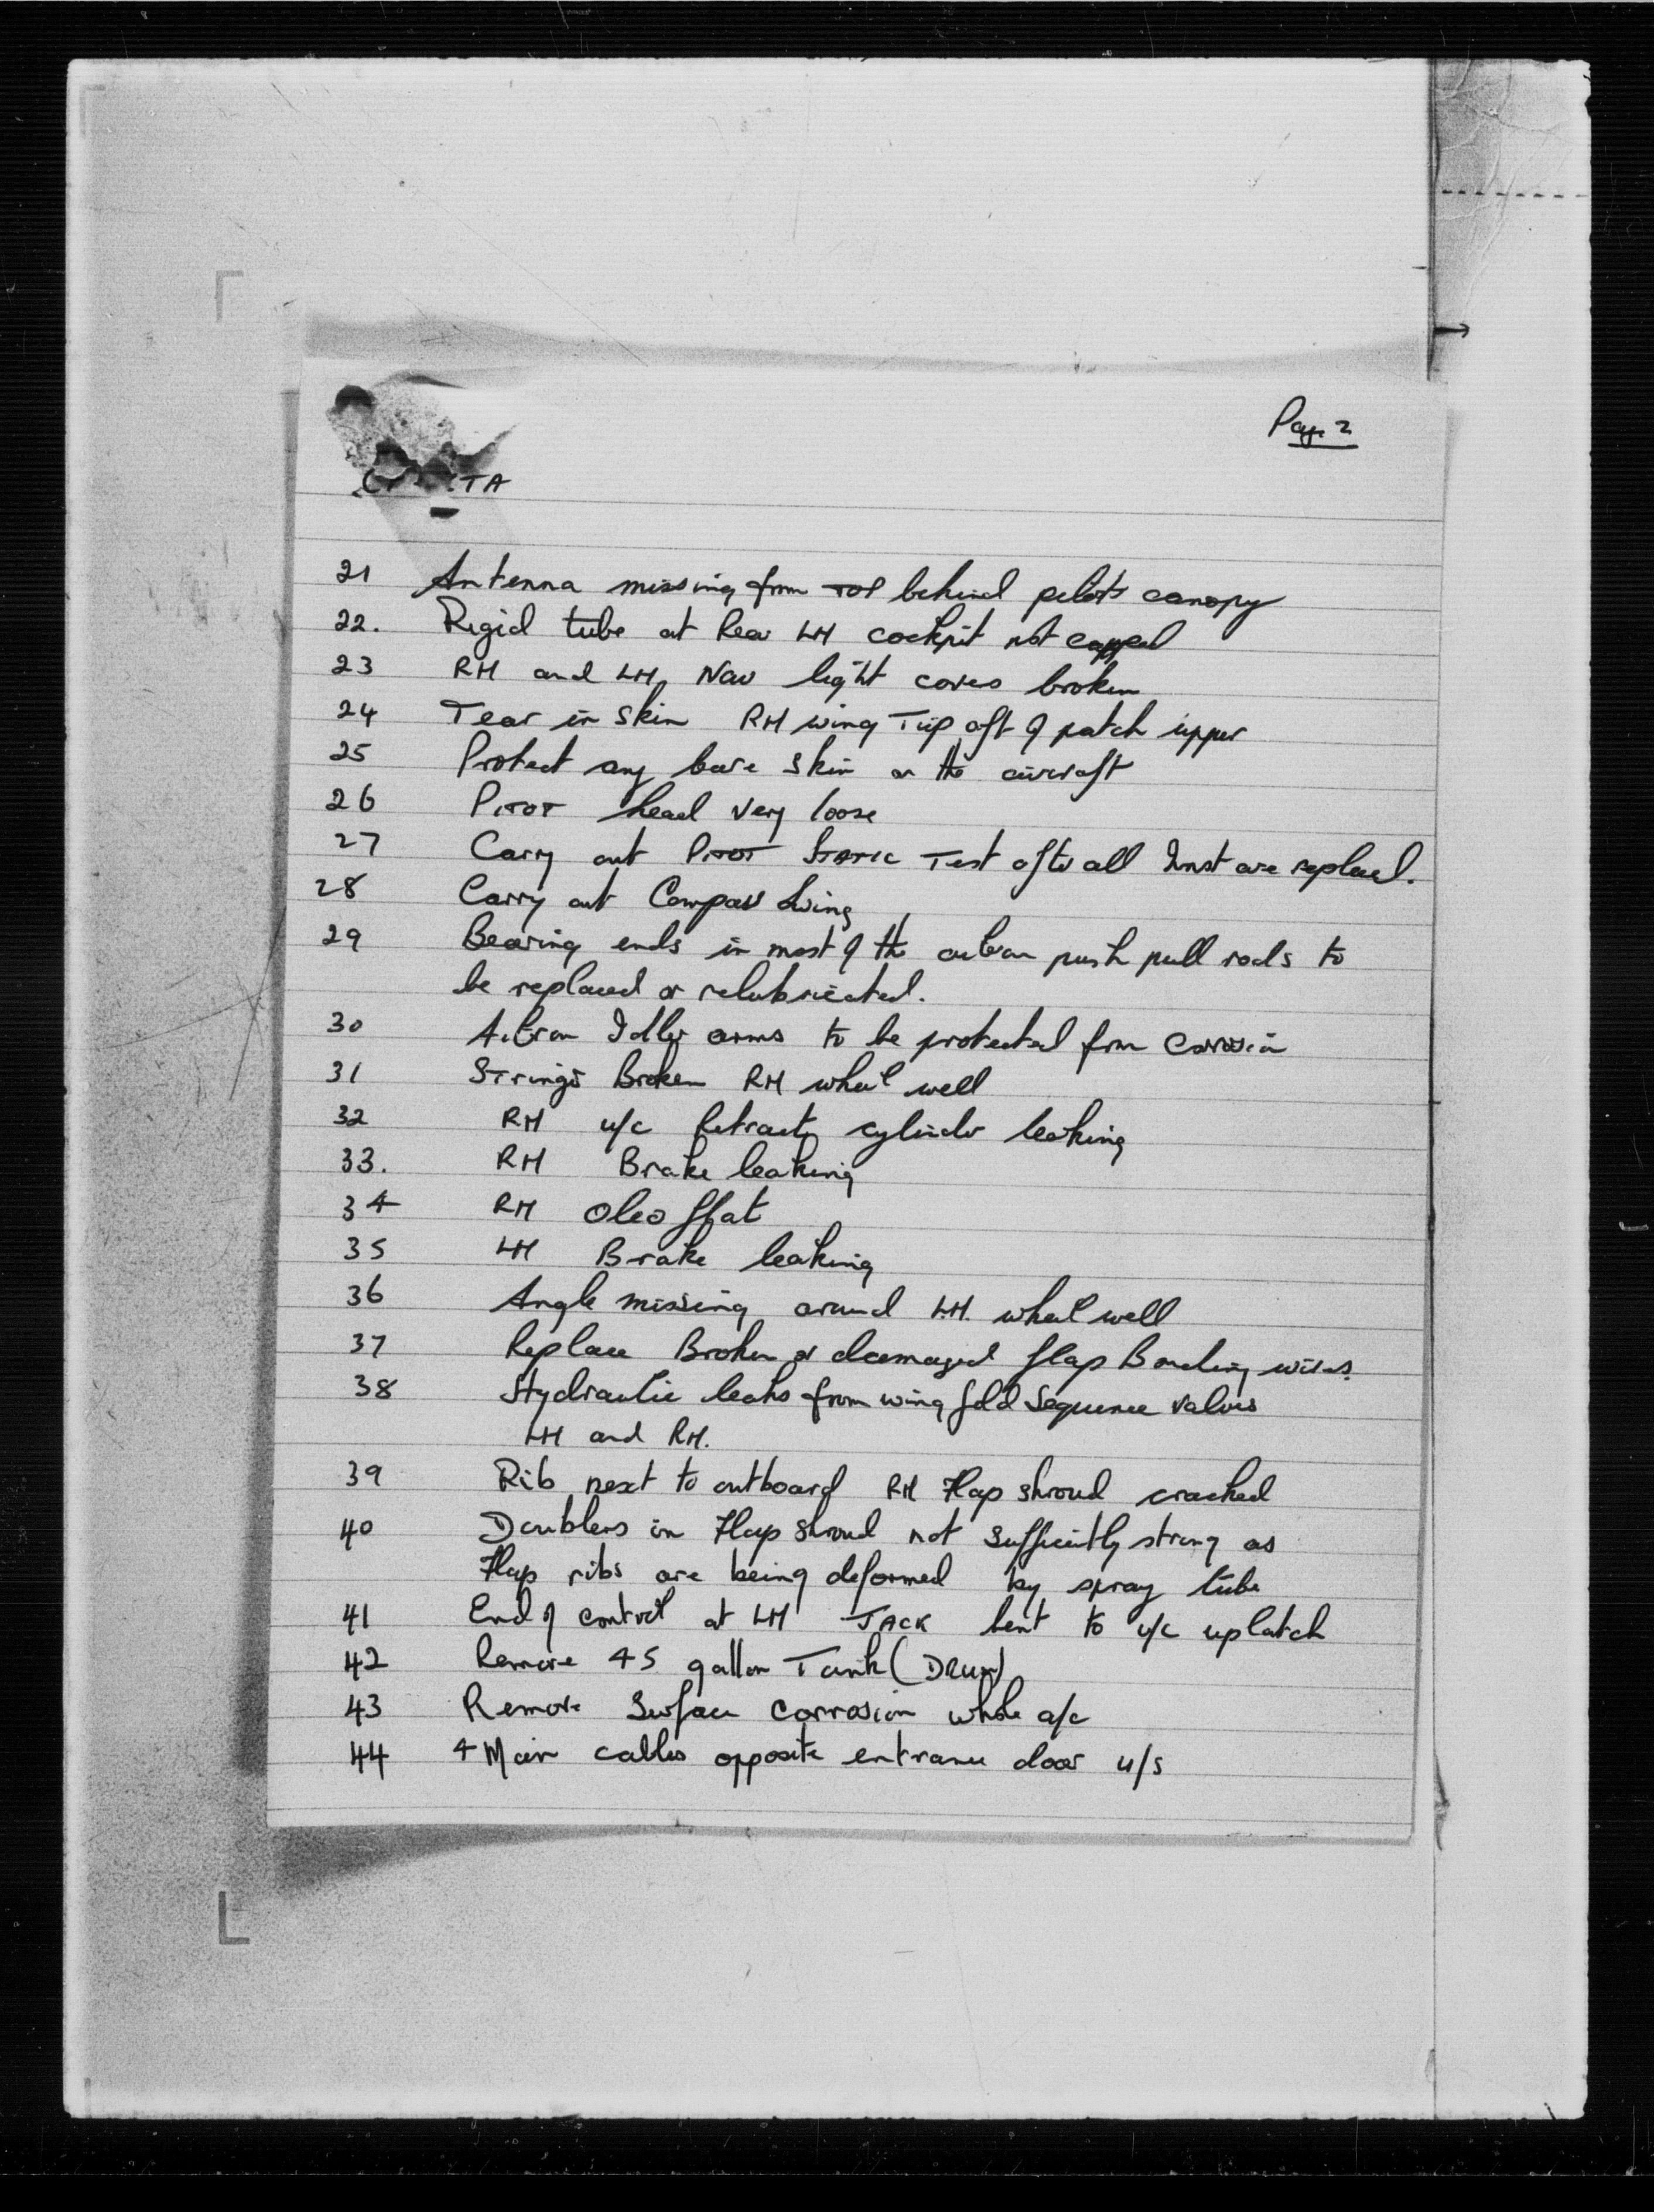 Page 2
TA
21 Antenna missing from TOP behind pilots canopy
22. Rigid tube at Rear LH cockpit not capped
23 RH and LH Nav light covers broken
24 Tear in skin RH wing Tip aft of patch upper
25 Protect any bare skin on the aircraft
26 PITOT head very loose
27 Carry out PITOT STATIC Test after all Inst are replaced.
28 Carry out Compass Swing
29 Bearing ends in most of the aileron push pull rods to
be replaced or relubricated.
30 Aileron Idler arms to be protected from Corrosion
31 Strings Broken RH wheel well
32 RH u/c Retract cylinder leaking
33. RH Brake leaking
34 RH Oleo flat
35 LH Brake leaking
36 Angle missing around L.H. wheel well
37 Replace Broken or damaged flap Bonding wires.
38 Hydraulic leaks from wing fold Sequence valves
LH and RH.
39 Rib next to outboard RH Flap shroud cracked
40 Doublers in Flap shroud not sufficiently strong as
Flap ribs are being deformed by spray tube
41 End of control at LH JACK bent to u/c uplatch
42 Remove 45 gallon Tank (DRUM)
43 Remove Surface Corrosion whole a/c
44 4 Main cables opposite entrance door u/s